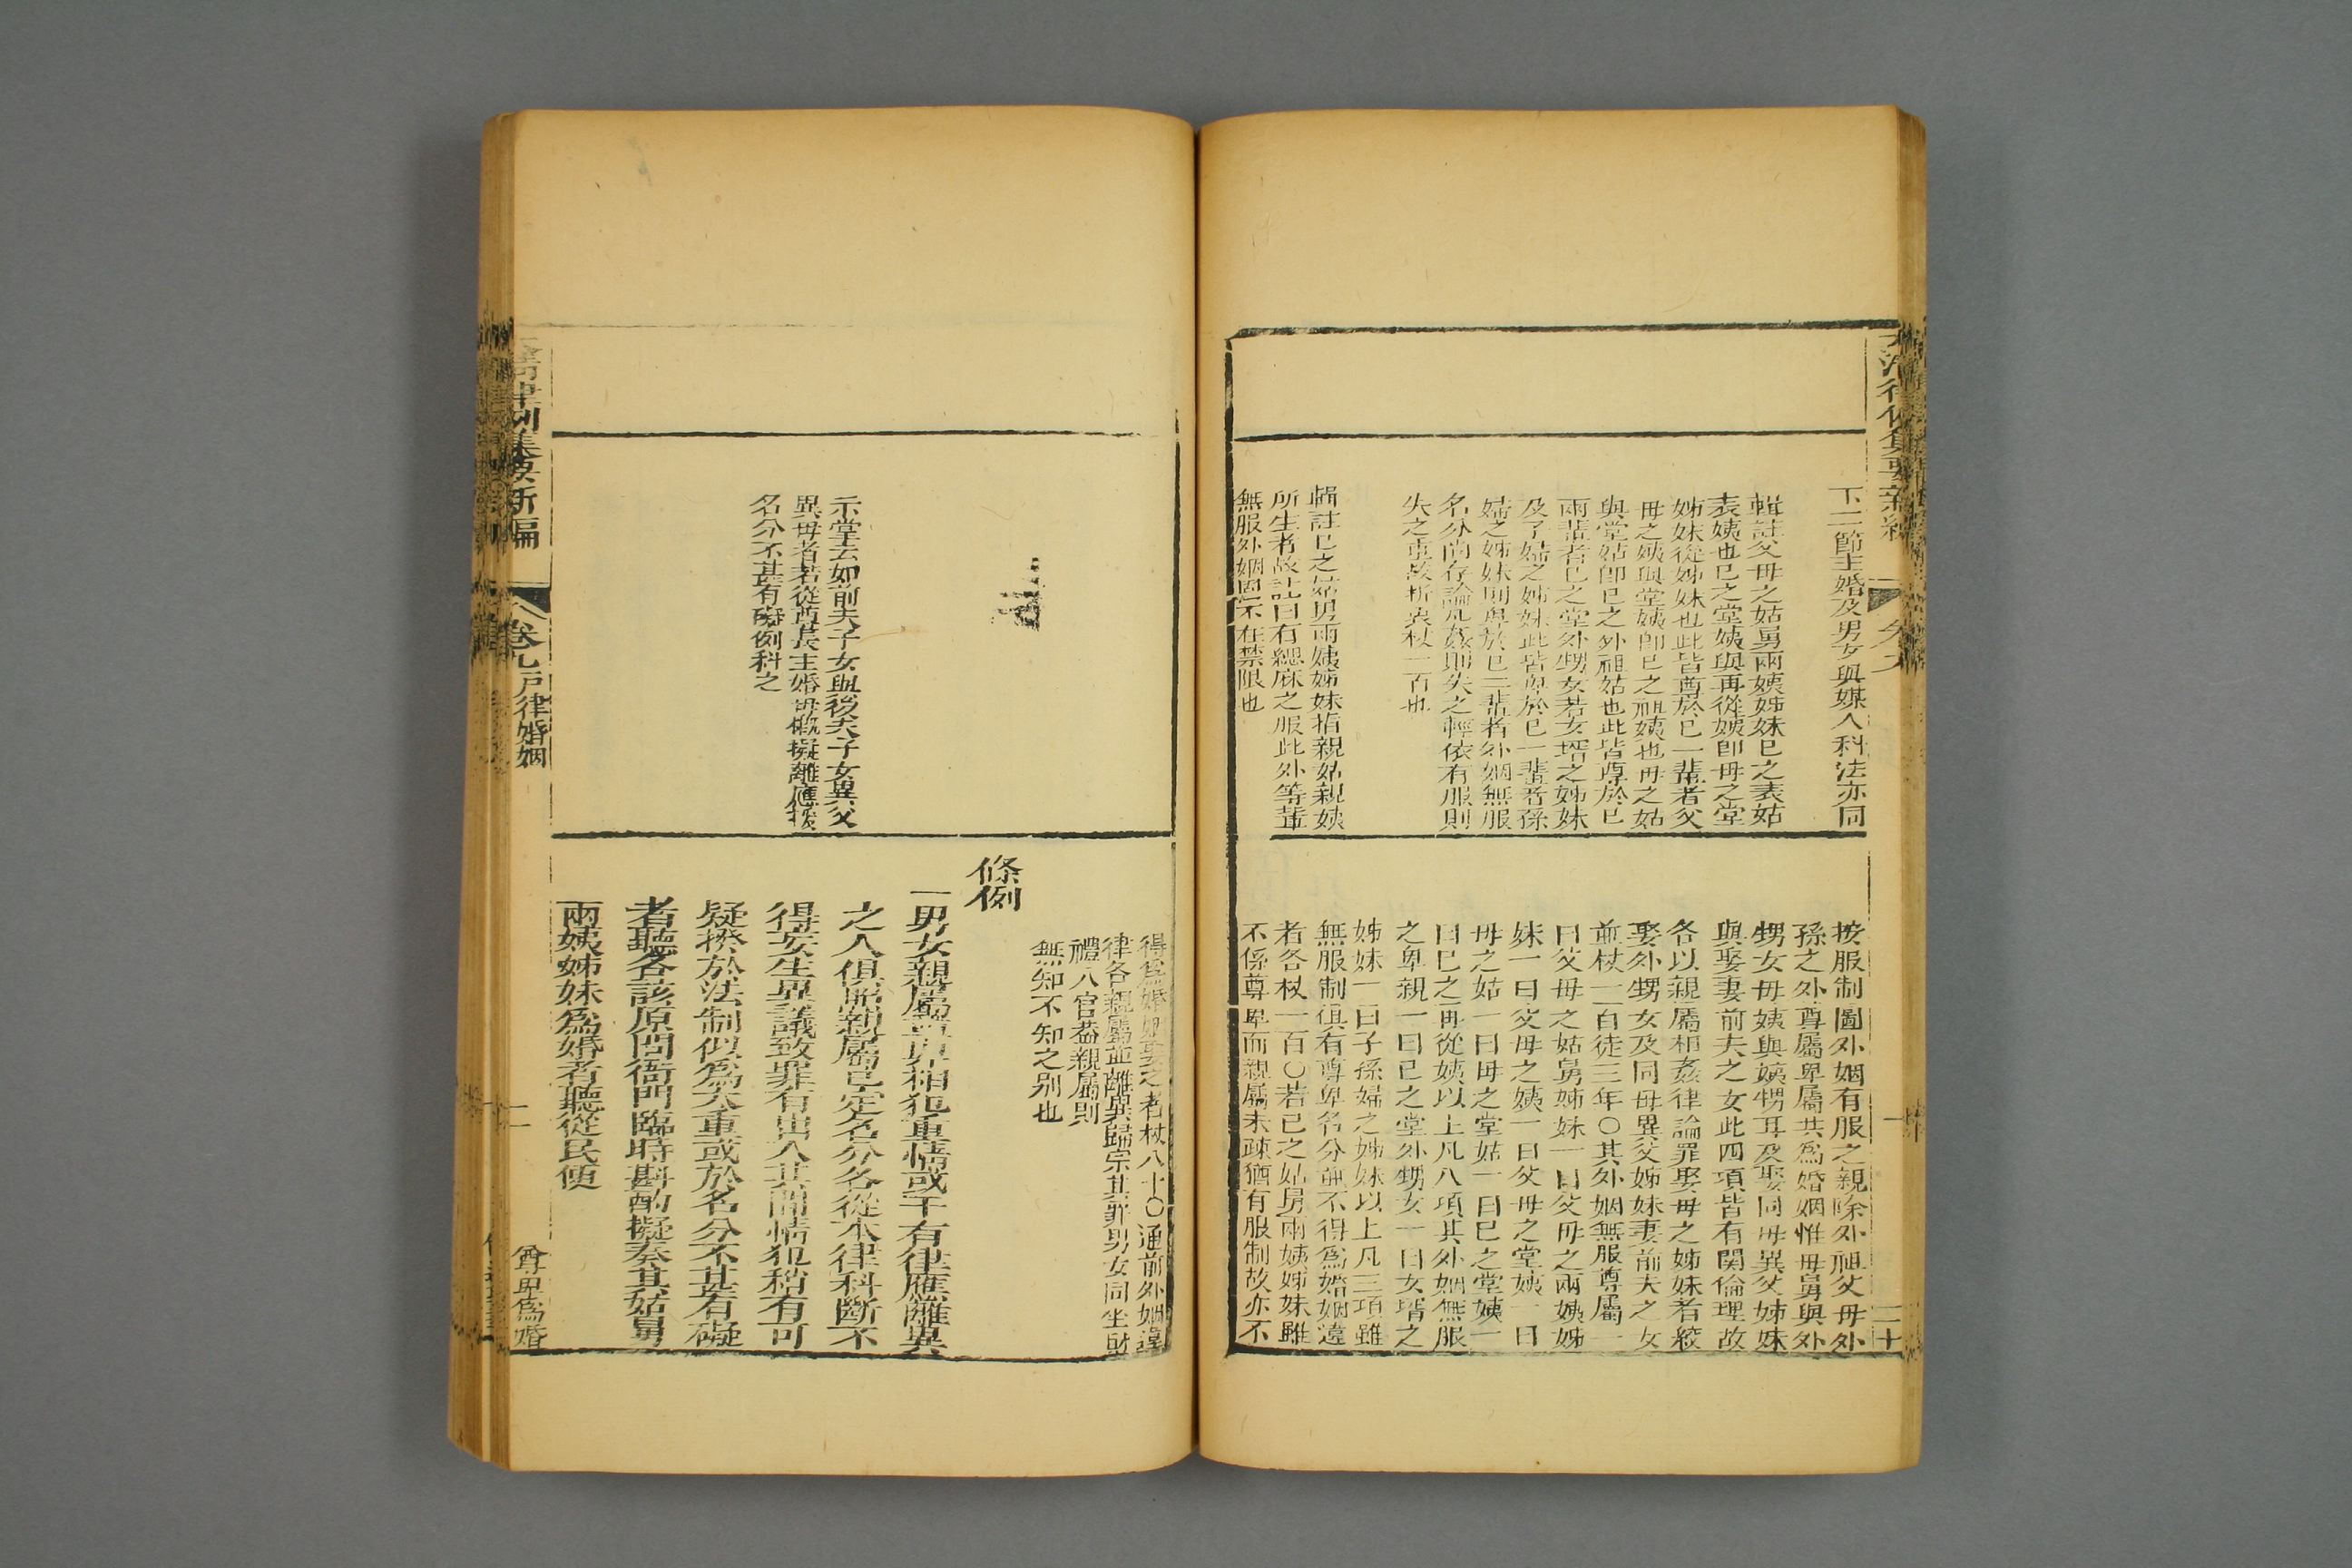 下二節主婚及男女與媒人科法亦同
輯註父母之姑舅兩姨姊妹已之表姑
表姨也已之堂姨與再從姨卽母之堂
姊妹從姊妹也此皆尊於已一輩者父
母之姨與堂姨卽已之祖姨也母之姑
與堂姑卽已之外祖姑也此皆尊於已
兩輩者已之堂外甥女若女壻之姊妹
及子婦之姊妹此皆卑於已一輩者孫
婦之姊妹則卑於已二輩者外姻無服
名分尚存論凡姦則失之輕依有服則
失之重故折衷杖一百也
輯註已之姑舅兩姨姊妹指親姑親姨
所生者故註曰有緦麻之服此外等輩
無服外姻恩不在禁限也
按服制圖外姻有服之親除外祖父母外
孫之外尊屬卑屬共爲婚姻惟母舅與外
甥女母姨與姨甥耳及娶同母異父姊妹
與娶妻前夫之女此四項皆有関倫理故
各以親屬相姦律論罪娶母之姊妹者絞
娶外甥女及同母異父姊妹妻前夫之女
並杖一百徒三年〇其外姻無服尊屬一
曰父母之姑舅姊妹一曰父母之兩姨姊
妹一曰父母之姨一曰父母之堂姨一曰
母之姑一曰母之堂姑一曰已之堂姨一
曰已之再從姨以上凡八項其外姻無服
之卑親一曰已之堂外甥女一曰女壻之
姊妹一曰子孫婦之姊妹以上凡三項雖
無服制俱有尊卑名分並不得爲婚姻違
者各杖一百〇若已之姑舅兩姨姊妹雖
不係尊卑而親屬未疎猶有服制故亦不
二十
示堂云如前夫子女與後夫子女異父
異母者若從尊長主婚毋槪擬離應援
名分不甚有礙例科之
得爲婚姻娶之者杖八十〇通前外姻違
律各親屬並離異歸宗其罪男女同坐財
禮入官蓋親屬則
無知不知之別也
條例
一男女親屬尊卑相犯重情或干有律應離異
之人俱照親屬已定名分各從本律科斷不
得妄生異議致罪有出入其間情犯稍有可
疑揆於法制似爲太重或於名分不甚有礙
者聽各該原問衙門臨時斟酌擬奏其姑舅
兩姨姊妹爲婚者聽從民便
律例集要新編
卷九戶律婚姻
尊卑爲婚